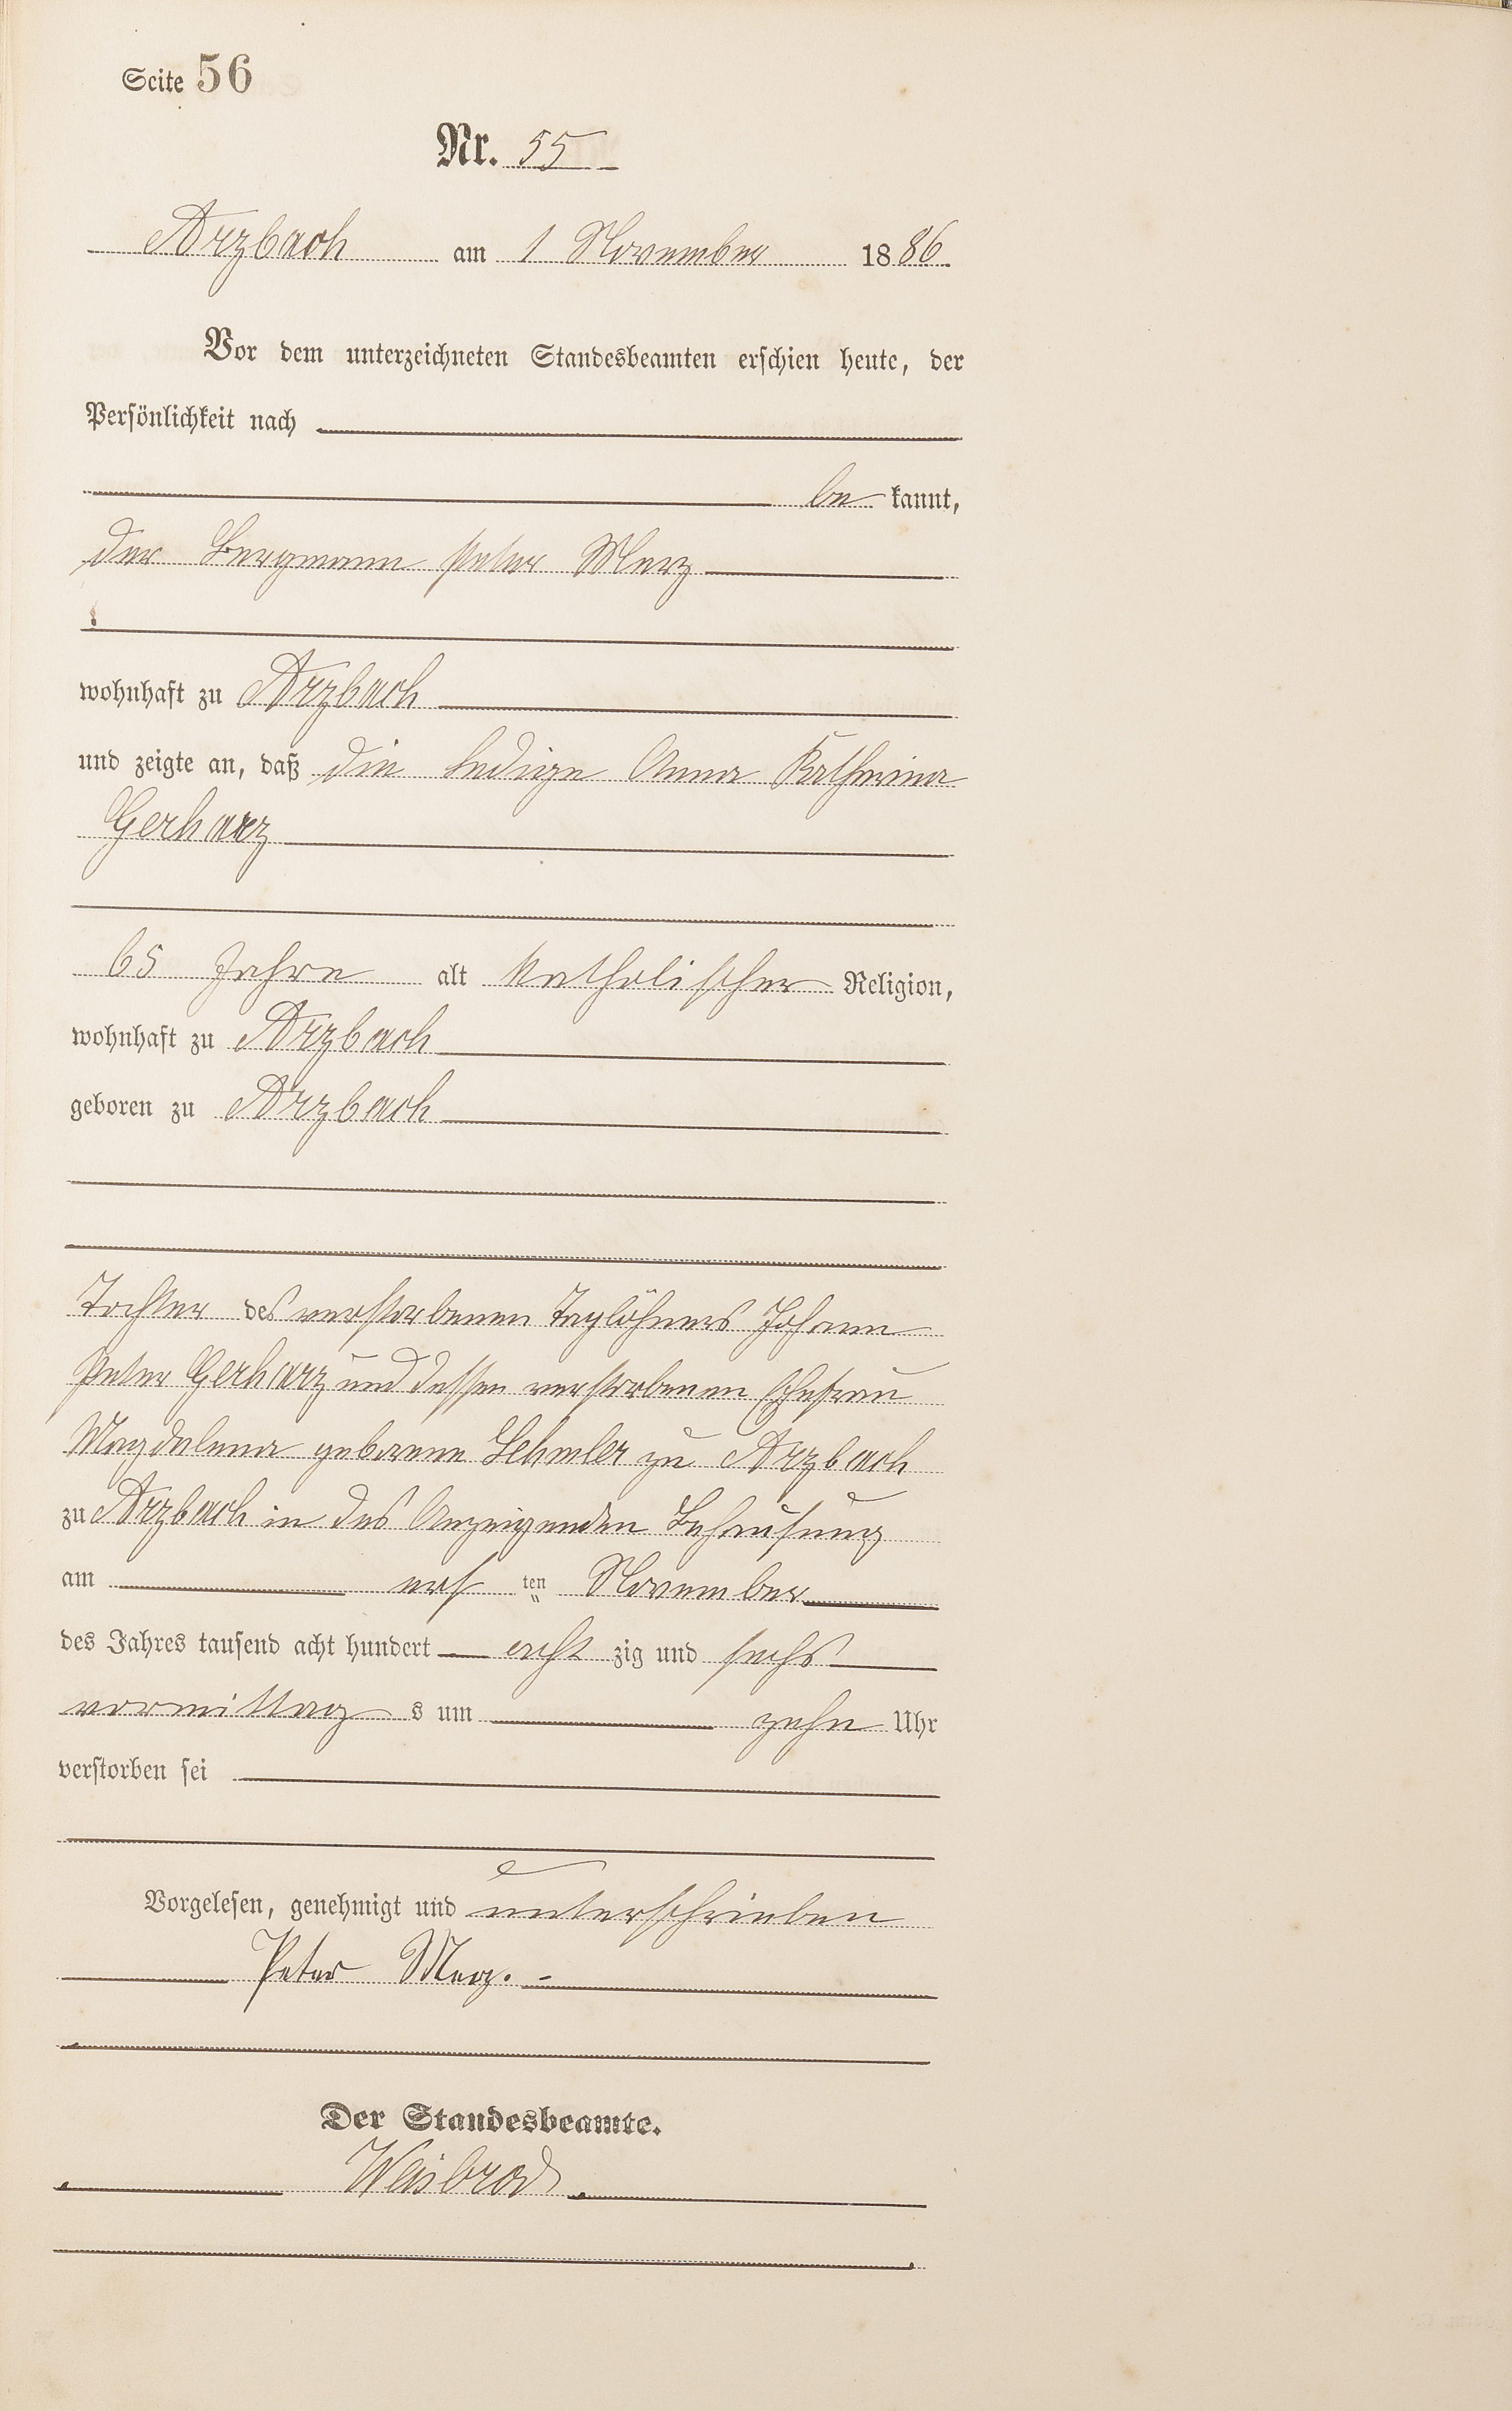 Seite 56
Nr. 55
Arzbach am 1 November 1886.
Vor dem unterzeichneten Standesbeamten erschien heute, der
Persönlichkeit nach
be kannt,
der Bergmann Peter Merz
wohnhaft zu Arzbach
und zeigte an, daß die ledige Anna Katharina
Gerharz
65 Jahre alt katholischer Religion,
wohnhaft zu Arzbach
geboren zu Arzbach
Tochter des verstorbenen Taglöhners Johann
Peter Gerharz und dessen verstorbenen Ehefrau
Magdalena geborene Lehmler zu Arzbach
zu Arzbach in des Anzeigenden Behausung
am ers ten November
des Jahres tausend acht hundert acht zig und sechs
vormittag s um zehn Uhr
verstorben sei
Vorgelesen, genehmigt und unterschrieben
Peter Merz.
Der Standesbeamte.
Weisbrod